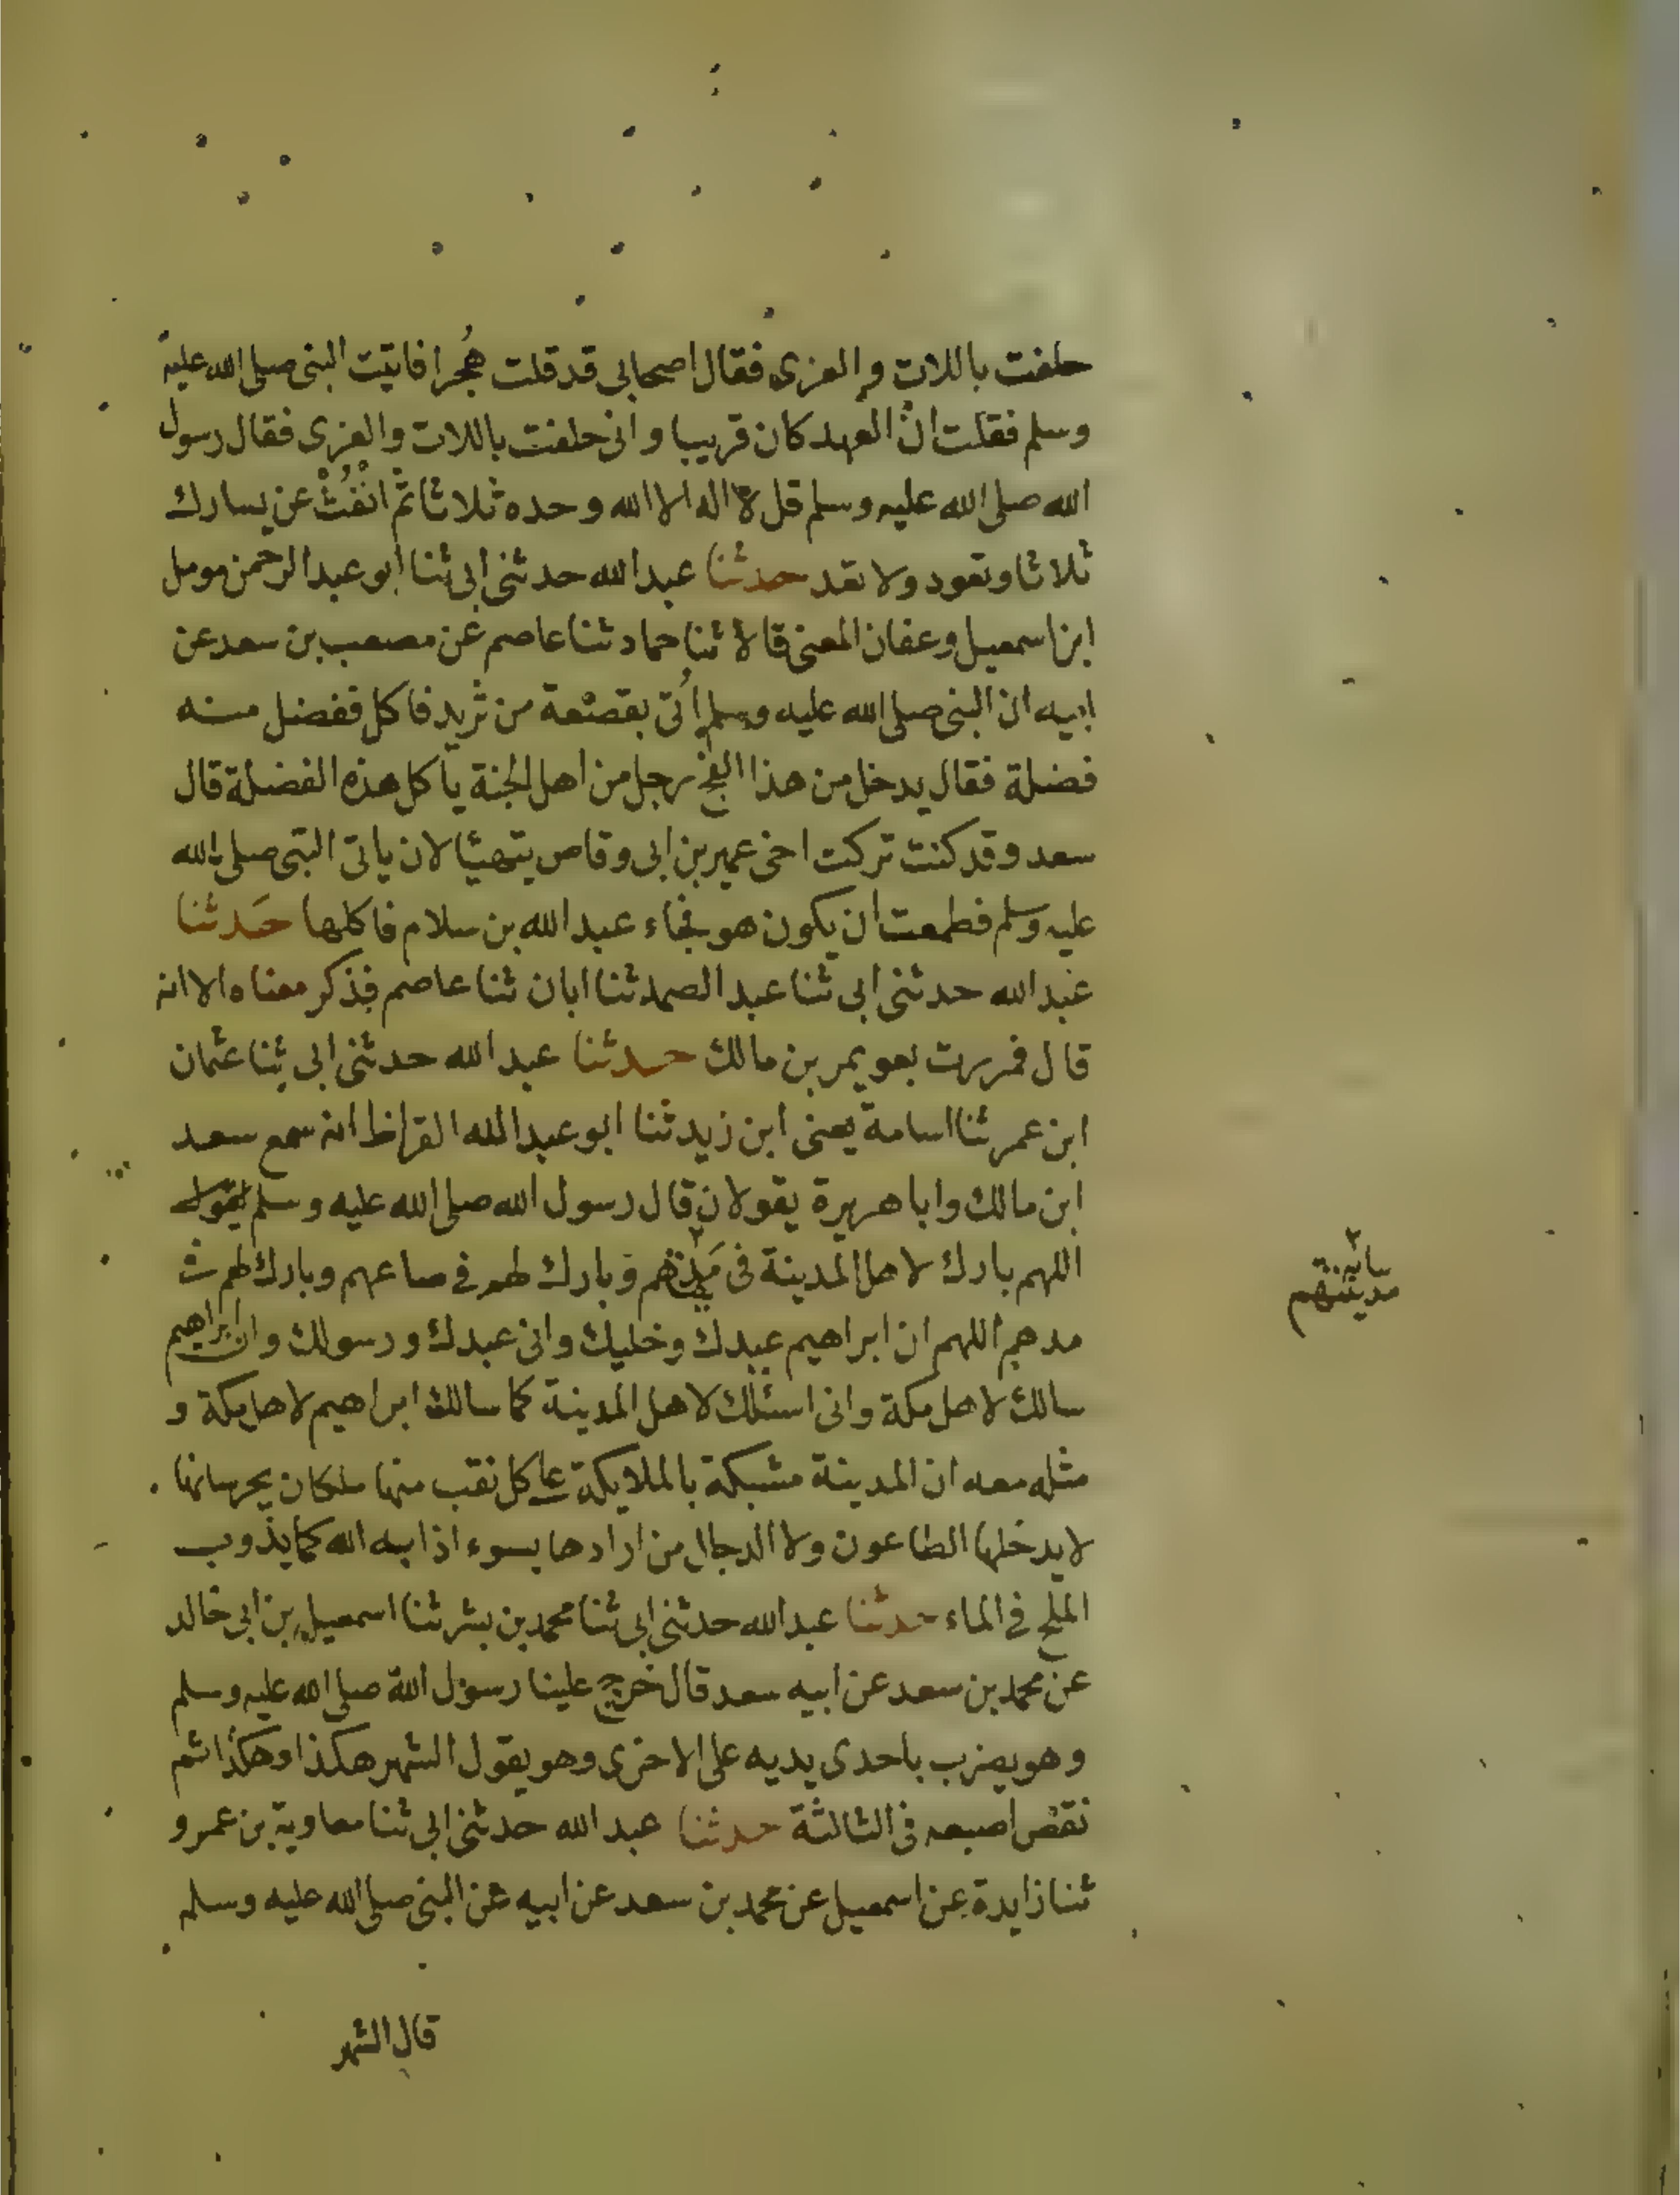 حلفت باللات والعزى فقال اصحابى قد قلت هُجرا فاتيت النبى صلى الله عليه
وسلم فقلت ان العهد كان قريبا وانى حلفت باللات والعزى فقال رسول
الله صلى الله عليه وسلم قل لا اله الا الله وحده ثلاثا ثم انْفُثْ عن يسارك
ثلاثا وتعود ولا تعد حدثنا عبد الله حدثنى ابى ثنا ابو عبد الرحمن مومل
ابن اسمعيل وعفان المعنى قالا ثنا حماد ثنا عاصم عن مصعب بن سعد عن
ابيه ان النبى صلى الله عليه وسلم اُتى بقصعة من ثريد فاكل ففضل منه
فضلة فقال يدخل من هذا الفج رجل من اهل الجنة ياكل هذه الفضلة قال
سعد وقد كنت تركت اخى عمير بن ابى وقاص يتهيئا لان ياتى النبى صلى الله
عليه وسلم فطمعت ان يكون هو فجاء عبد الله بن سلام فاكلها حَدثنا
عبد الله حدثنى ابى ثنا عبد الصمد ثنا ابان ثنا عاصم فذكر معناه الا انه
قال فمررت بعويمر بن مالك حدثنا عبد الله حدثنى ابى ثنا عثمان
ابن عمر ثنا اسامة يعنى ابن زيد ثنا ابو عبد الله القراظ انه سمع سعد
ابن مالك وابا هريرة يقولان قال رسول الله صلى الله عليه وسلم
اللهم بارك لاهل المدينة فى وبارك لهم فى صاعهم وبارك لهم فى
مدهم اللهم ان ابراهيم عبدك وخليك وانى عبدك ورسولك وان ابراهيم
سالك لاهل مكة وانى اسئلك لاهل المدينة كما سالك ابراهيم لاهل مكة و
مثله معه ان المدينة مشبكة بالملايكة على كل نقب منها ملكان يحرسانها
لا يدخلها الطاعون ولا الدجال من ارادها بسوء اذابه الله كما يذوب
الملح فى الماء حدثنا عبد الله حدثنى ابى ثنا محمد بن بشر ثنا اسمعيل بن ابى خالد
عن محمد بن سعد عن ابيه سعد قال خرج علينا رسول الله صلى الله عليه وسلم
وهو يضرب باحدى يديه على الاخرى وهو يقول الشهر هكذا وهكذا ثم
نقص اصبعه فى الثالثة حدثنا عبد الله حدثنى ابى ثنا معاوية بن عمرو
ثنا زايدة عن اسمعيل عن محمد بن سعد عن ابيه عن النبى صلى الله عليه وسلم
قال الشهر
مدينتهم